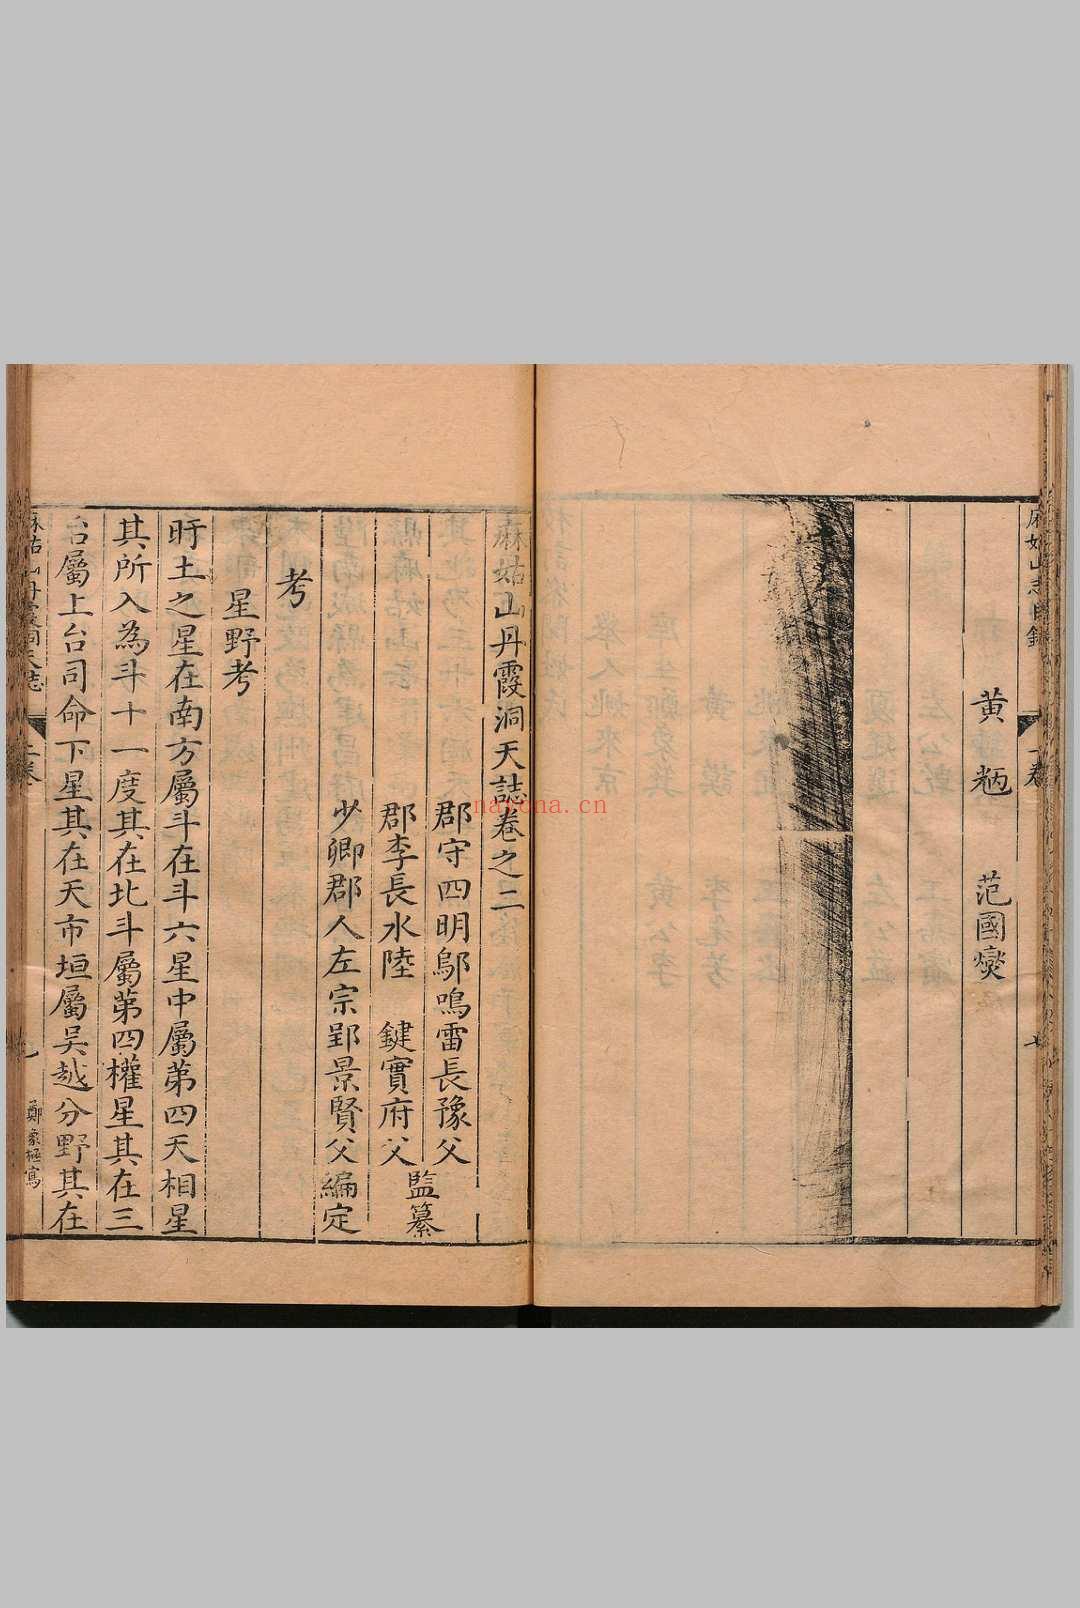 麻姑山志目錄
一卷
黃 㶽 范國燮
七
麻姑山丹霞洞天誌卷之二
郡守四明鄔鳴雷長豫父
郡李長水陸 鍵實府父
監纂
少卿郡人左宗郢景賢父編定
考
星野考
盱土之星在南方屬斗在斗六星中屬第四天相星
其所入為斗十一度其在北斗屬第四權星其在三
台屬上台司命下星其在天市垣屬吳越分野其在
麻姑山丹霞洞天誌
二卷
鄭象極寫
nayona.cn